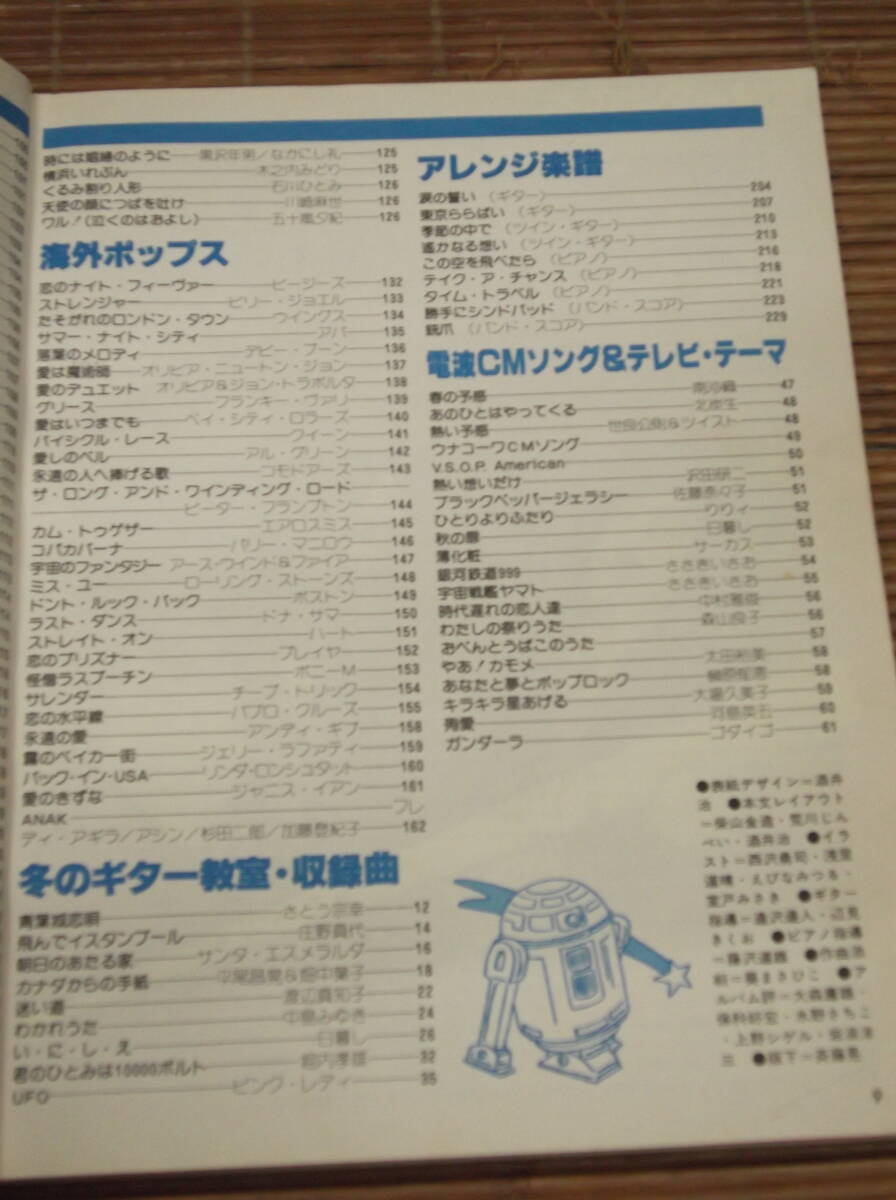 時には娼婦のように 黒沢年男/なかにし礼 125
横浜いれぶん 木之内みどり 125
くるみ割り人形 石川ひとみ 126
天使の顔につばを吐け 川崎麻世 126
ワル!(泣くのはおよし) 五十嵐夕紀 126
海外ポップス
恋のナイト・フィーヴァー ビージーズ 132
ストレンジャー ビリー・ジョエル 133
たそがれのロンドン・タウン ウイングス 134
サマー・ナイト・シティ アバ 135
落葉のメロディ デビー・ブーン 136
愛は魔術師 オリビア・ニュートン・ジョン 137
愛のデュエット オリビア&ジョン・トラボルタ 138
グリース フランキー・ヴァリ 139
愛はいつまでも ベイ・シティ・ロラーズ 140
バイシクル・レース クイーン 141
愛しのベル アル・グリーン 142
永遠の人へ捧げる歌 コモドアーズ 143
ザ・ロング・アンド・ワインディング・ロード
ピーター・フランプトン 144
カム・トゥゲザー エアロスミス 145
コパカバーナ バリー・マニロウ 146
宇宙のファンタジー アース・ウインド&ファイア 147
ミス・ユー ローリング・ストーンズ 148
ドント・ルック・バック ボストン 149
ラスト・ダンス ドナ・サマー 150
ストレイト・オン ハート 151
恋のプリズナー プレイヤー 152
怪僧ラスプーチン ボニーM 153
サレンダー チープ・トリック 154
恋の水平線 パブロ・クルーズ 155
永遠の愛 アンディ・ギブ 158
霧のベイカー街 ジェリー・ラファティ 159
バック・イン・USA リンダ・ロンシュタット 160
愛のきずな ジャニス・イアン 161
ANAK フレ
ディ・アギラ/アシン/杉田二郎/加藤登紀子 162
冬のギター教室・収録曲
青葉城恋唄 さとう宗幸 12
飛んでイスタンブール 庄野真代 14
朝日のあたる家 サンタ・エスメラルダ 16
カナダからの手紙 平尾昌晃&畑中葉子 18
迷い道 渡辺真知子 22
わかれうた 中島みゆき 24
い・に・し・え 日暮し 26
君のひとみは10000ボルト 堀内孝雄 32
UFO ピンク・レディ 35
アレンジ楽譜
涙の誓い (ギター) 204
東京ららばい (ギター) 207
季節の中で (ツイン・ギター) 210
遙かなる想い (ツイン・ギター) 213
この空を飛べたら (ピアノ) 216
テイク・ア・チャンス (ピアノ) 218
タイム・トラベル (ピアノ) 221
勝手にシンドバッド (バンド・スコア) 223
銃爪 (バンド・スコア) 229
電波CMソング&テレビ・テーマ
春の予感 南沙織 47
あのひとはやってくる 48
熱い予感 世良公則&ツイスト 48
ウナコーワCMソング 49
V.S.O.P. American 50
熱い想いだけ 沢田研二 51
ブラックペッパージェラシー 佐藤奈々子 51
ひとりよりふたり りりィ 52
秋の扉 日暮し 52
薄化粧 サーカス 53
銀河鉄道999 ささきいさお 54
宇宙戦艦ヤマト ささきいさお 55
時代遅れの恋人達 中村雅俊 56
わたしの祭りうた 森山良子 56
おべんとうばこのうた 57
やあ!カモメ 太田裕美 58
あなたと夢とポップロック 榊原郁恵 58
キラキラ星あげる 大場久美子 59
殉愛 河島英五 60
ガンダーラ ゴダイゴ 61
●表紙デザイン=酒井
治 ●本文レイアウト
=柴山金造・荒川じん
ぺい・酒井治 ●イラ
スト=西沢勇司・浅里
道晴・えびなみつる・
室戸みさき ●ギター
指導=道沢道人・辺見
きくお ●ピアノ指導
=藤沢道雄 ●作曲添
削=葵まさひこ ●ア
ルバム評=大森庸雄・
保科好宏・水野さちこ
・上野シゲル・岩浪洋
三 ●版下=斉藤
9